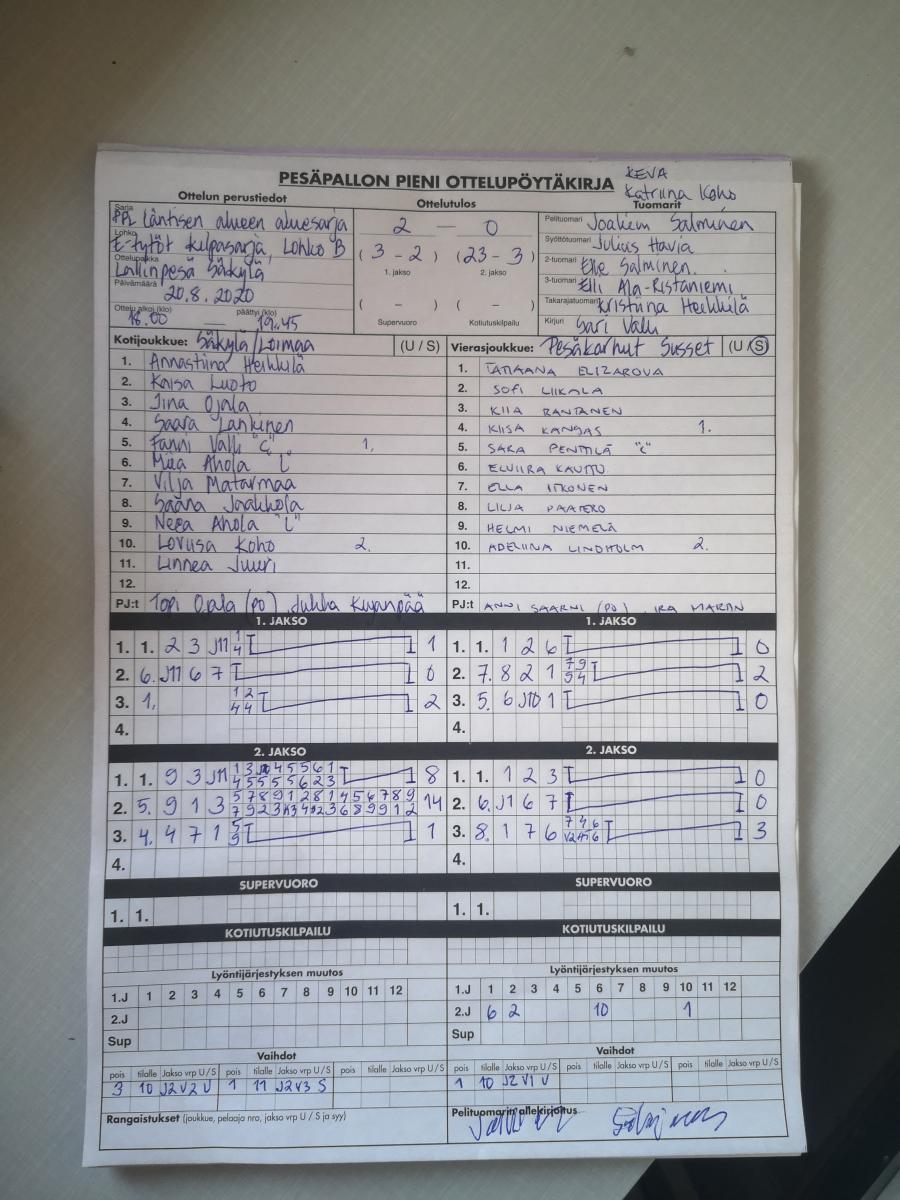 PESÄPALLON PIENI OTTELUPÖYTÄKIRJA
KEVA
Katriina Koho
Ottelun perustiedot Ottelutulos Tuomarit
Sarja PPL Läntisen alueen aluesarja
Lohko E-tytöt kilpasarja, Lohko B
Ottelupaikka Lallinpesä Säkylä
Päivämäärä 20.8.2020
Ottelu alkoi (klo) 18.00 — päättyi (klo) 19.45
2 — 0
(3 - 2) (23 - 3)
1. jakso 2. jakso
( - ) ( - )
Supervuoro Kotiutuskilpailu
Pelituomari Joakim Salminen
Syöttötuomari Julius Havia
2-tuomari Elle Salminen
3-tuomari Elli Ala-Ristaniemi
Takarajatuomari Kristiina Heikkilä
Kirjuri Sari Valli
Kotijoukkue: Säkylä/Loimaa (U / S)
1. Annastiina Heikkilä
2. Kaisa Luoto
3. Iina Ojala
4. Saara Lankinen
5. Fanni Valli "C" 1.
6. Miia Ahola "L"
7. Vilja Matarmaa
8. Saana Jaakkola
9. Neea Ahola "L"
10. Loviisa Koho 2.
11. Linnea Juuri
12.
PJ:t Topi Ojala (PO), Jukka Kujanpää
Vierasjoukkue: Pesäkarhut Susset (U / S)
1. TATIAANA ELIZAROVA
2. SOFI LIIKALA
3. KIIA RANTANEN
4. KIISA KANGAS 1.
5. SARA PENTTILÄ "C"
6. ELVIIRA KAUTTU
7. ELLA ITKONEN
8. LILJA PAATERO
9. HELMI NIEMELÄ
10. ADELIINA LINDHOLM 2.
11.
12.
PJ:t ANNI SAARNI (PO), IRA MARTIN
1. JAKSO
1. 1. 2 3 J11 1 4 1
2. 6. J11 6 7 0
3. 1. 1 2 4 4 2
4.
1. JAKSO
1. 1. 1 2 6 0
2. 7. 8 2 1 7 9 9 4 2
3. 5. 6 J10 1 0
4.
2. JAKSO
1. 1. 9 3 J11 8
2. 5. 9 1 3 14
3. 4. 4 7 1 5 9 1
4.
2. JAKSO
1. 1. 1 2 3 0
2. 6. J1 6 7 0
3. 8. 1 7 6 7 4 6 3
4.
SUPERVUORO
1. 1.
SUPERVUORO
1. 1.
KOTIUTUSKILPAILU
KOTIUTUSKILPAILU
Lyöntijärjestyksen muutos
1.J 1 2 3 4 5 6 7 8 9 10 11 12
2.J
Sup
Lyöntijärjestyksen muutos
1.J 1 2 3 4 5 6 7 8 9 10 11 12
2.J 6 2 10 1
Sup
Vaihdot
pois tilalle Jakso vrp U / S pois tilalle Jakso vrp U / S pois tilalle Jakso vrp U / S
3 10 J2V2 U 1 11 J2V3 S
Vaihdot
pois tilalle Jakso vrp U / S pois tilalle Jakso vrp U / S pois tilalle Jakso vrp U / S
1 10 J2V1 U
Rangaistukset (joukkue, pelaaja nro, jakso vrp U / S ja syy)
Pelituomarin allekirjoitus